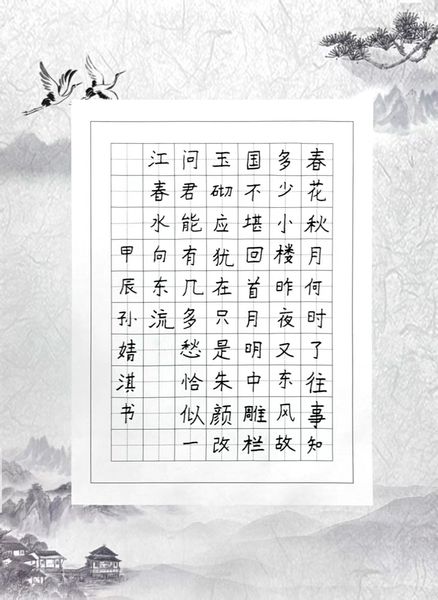 春花秋月何时了往事知
多少小楼昨夜又东风故
国不堪回首月明中雕栏
玉砌应犹在只是朱颜改
问君能有几多愁恰似一
江春水向东流
甲辰孙婧淇书